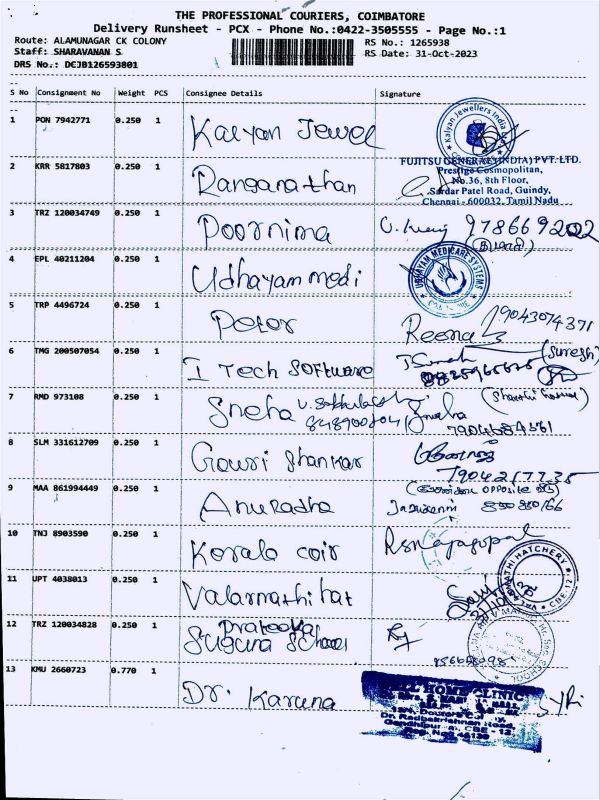 THE PROFESSIONAL COURIERS, COIMBATORE
Delivery Runsheet - PCX - Phone No.:0422-3505555 - Page No.:1
Route: ALAMUNAGAR CK COLONY
RS No.: 1265938
Staff: SHARAVANAN S
RS Date: 31-Oct-2023
DRS No.: DCJB126593801
S No Consignment No Weight PCS Consignee Details Signature
1 PON 7942771 0.250 1 Kalyan Jewel
Kalyan Jewellers India
FUJITSU GENERAL (INDIA) PVT. LTD.
Prestige Cosmopolitan,
No.36, 8th Floor,
Sardar Patel Road, Guindy,
Chennai - 600032, Tamil Nadu
2 KRR 5817803 0.250 1 Ranganathan
3 TRZ 120034749 0.250 1 Poornima
4 EPL 40211204 0.250 1 Udhayam medi
UDHAYAM MEDICARE SYSTEMS
5 TRP 4496724 0.250 1 Peter Reena 9043074371
6 TMG 200507054 0.250 1 I Tech Software (Suresh)
7 RMD 973108 0.250 1 Sneha
8 SLM 331612709 0.250 1 Gowri Shankar
7904217735
9 MAA 861994449 0.250 1 Anuradha
opposite
10 TNJ 8903590 0.250 1 Kerala coir Rsnajagopal
11 UPT 4038013 0.250 1 Valarmathi hat
HATCHERY
CBE-12
12 TRZ 120034828 0.250 1 Prateeka
Suguna School
13 KMU 2660723 0.770 1 Dr. Karuna
HOME CLINIC
Dr. Radhakrishnan Road,